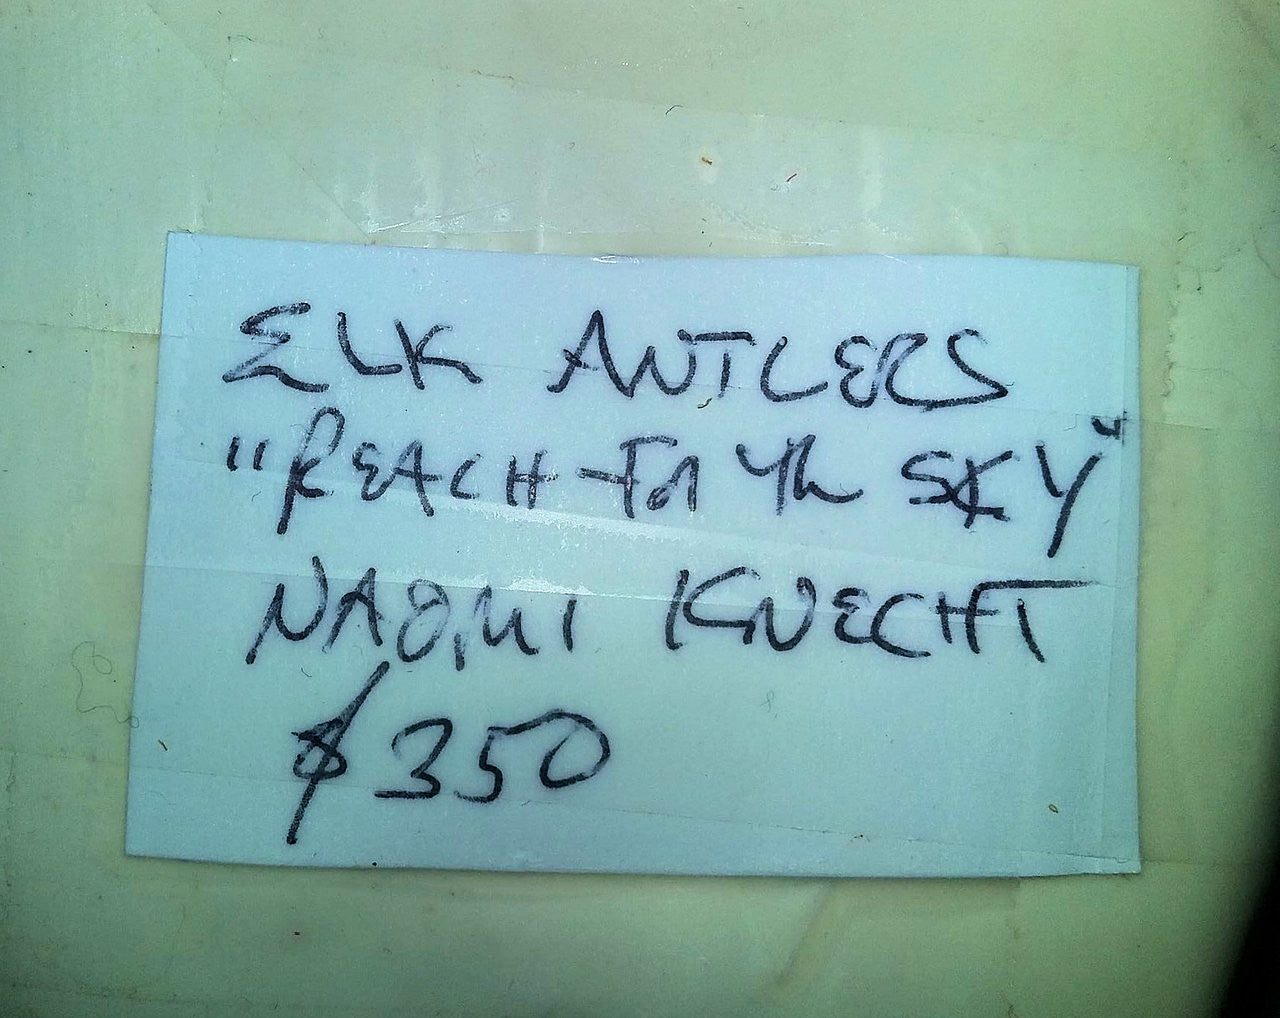 ELK ANTLERS
"REACH FOR THE SKY"
NAOMI KNECHT
$350